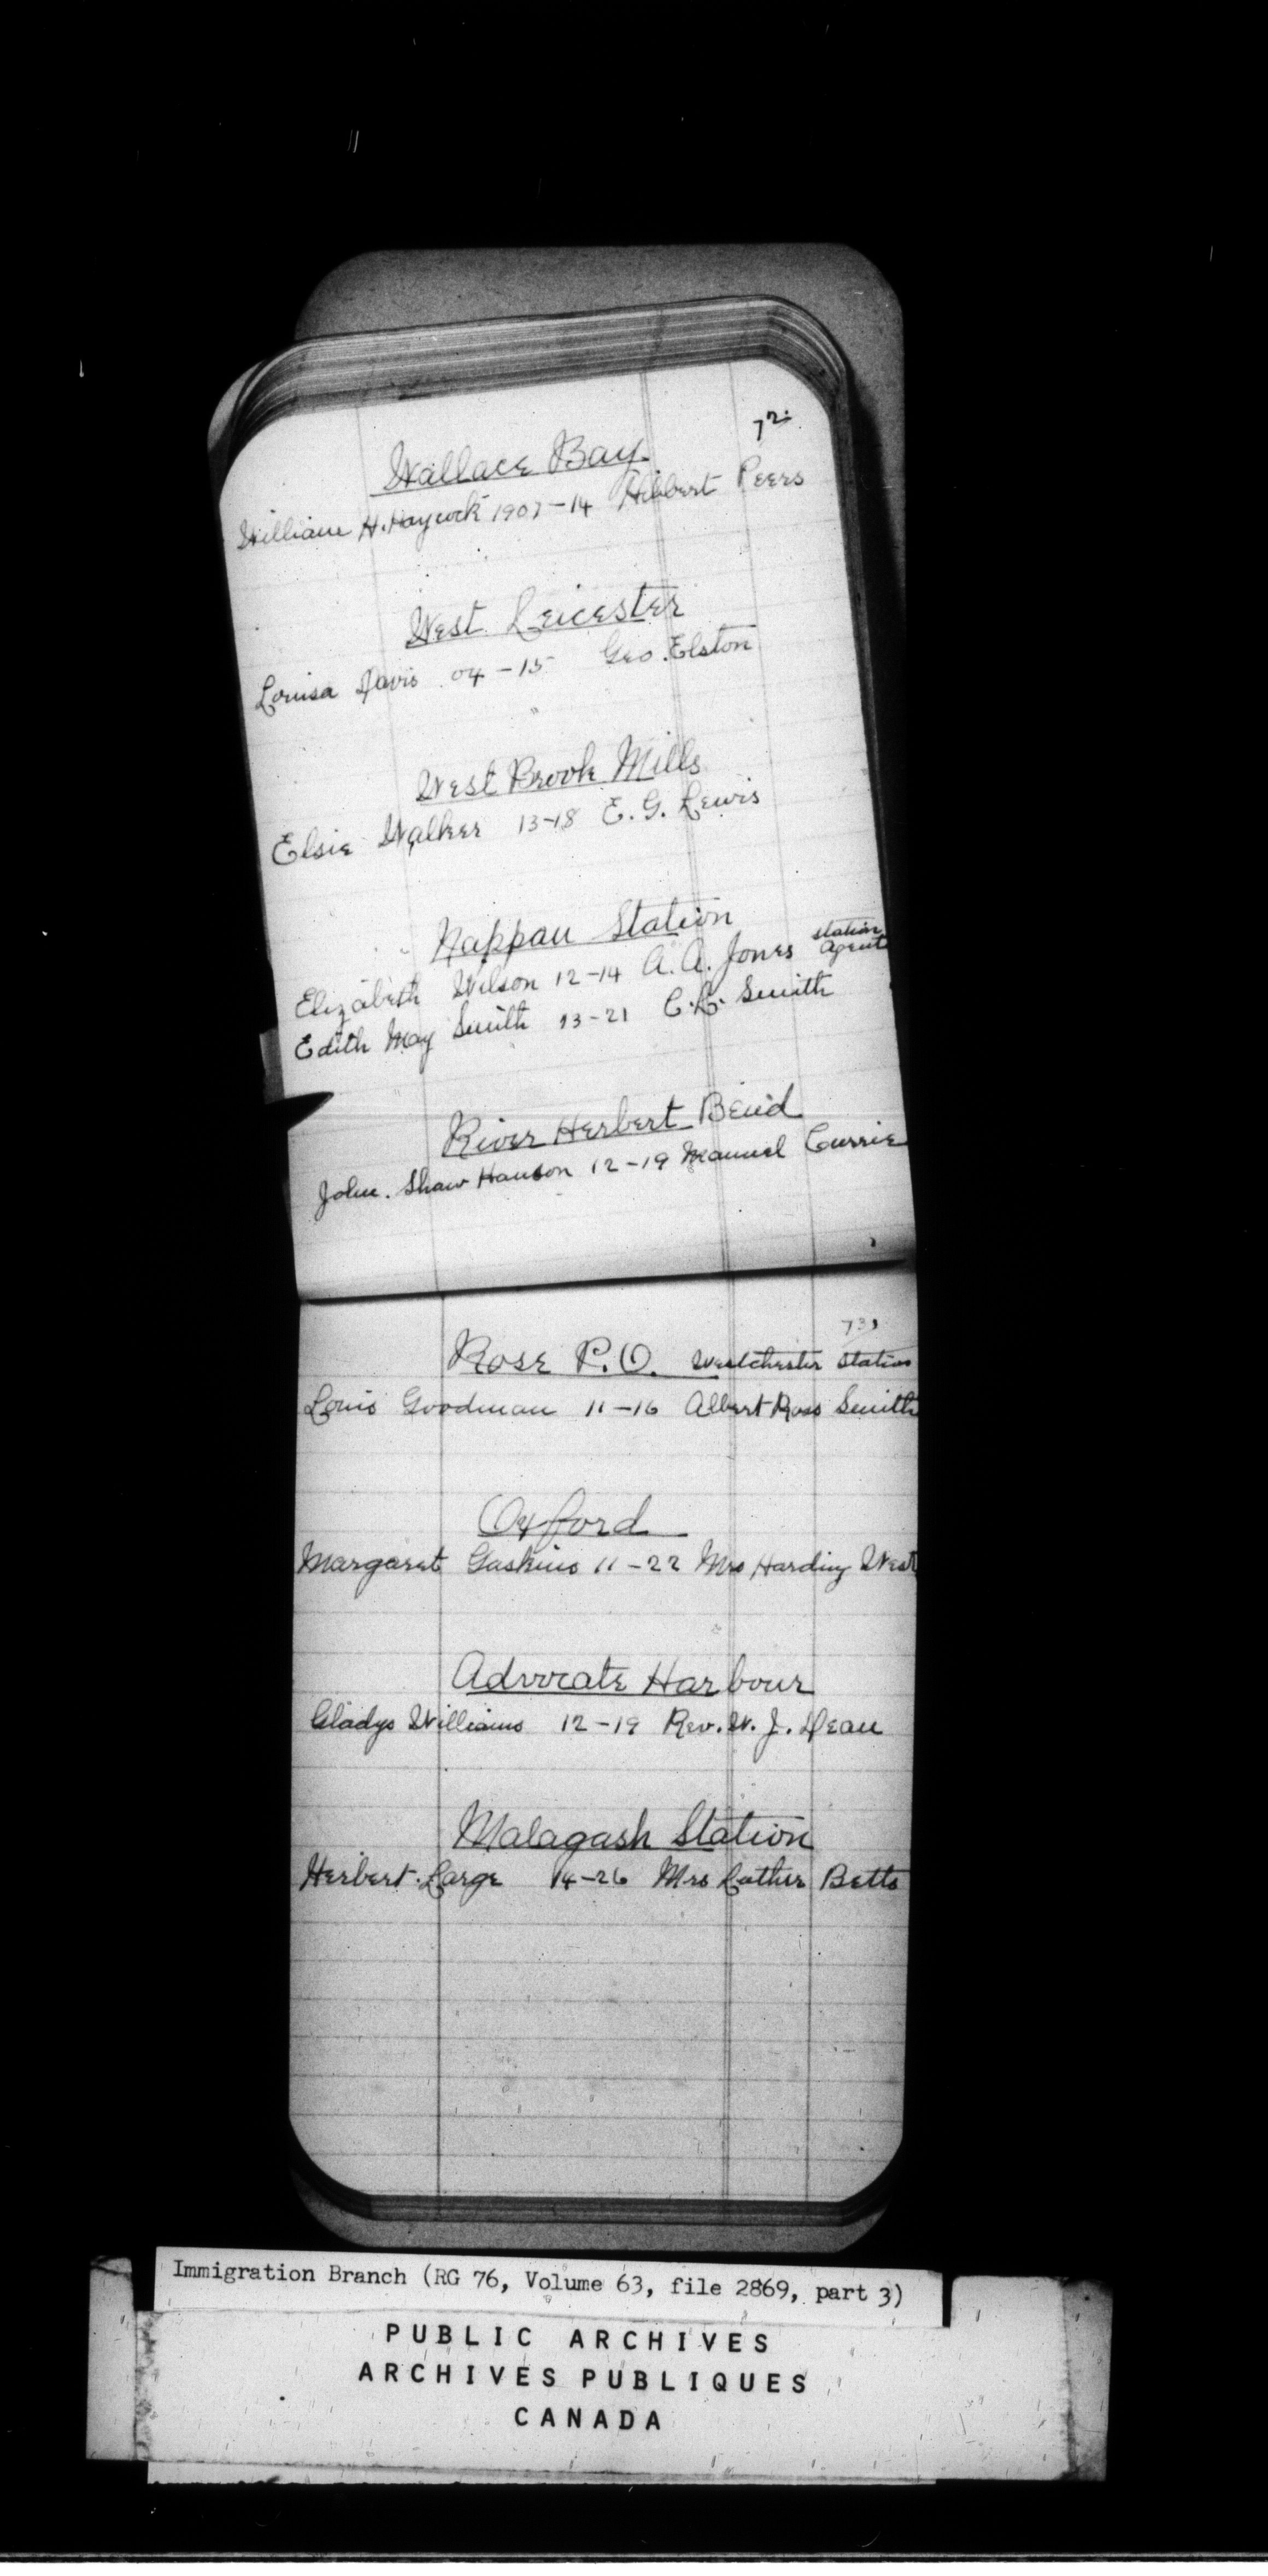 72.
Wallace Bay
William H. Haycock 1907-14 Hibbert Peers
West Leicester
Louisa Davis 04-15 Geo. Elston
West Brook Mills
Elsie Walker 13-18 E. G. Lewis
Nappan Station
Elizabeth Wilson 12-14 A. A. Jones station agent
Edith May Smith 13-21 C. L. Smith
River Herbert Bend
John Shaw Hanson 12-19 Manuel Currie
73
Rose P.O. Westchester Station
Louis Goodman 11-16 Albert Ross Smith
Oxford
Margaret Gaskins 11-22 Mrs Harding West
Advocate Harbour
Gladys Williams 12-19 Rev. W. J. Dean
Malagash Station
Herbert Large 14-26 Mrs Luther Betts
Immigration Branch (RG 76, Volume 63, file 2869, part 3)
PUBLIC ARCHIVES
ARCHIVES PUBLIQUES
CANADA